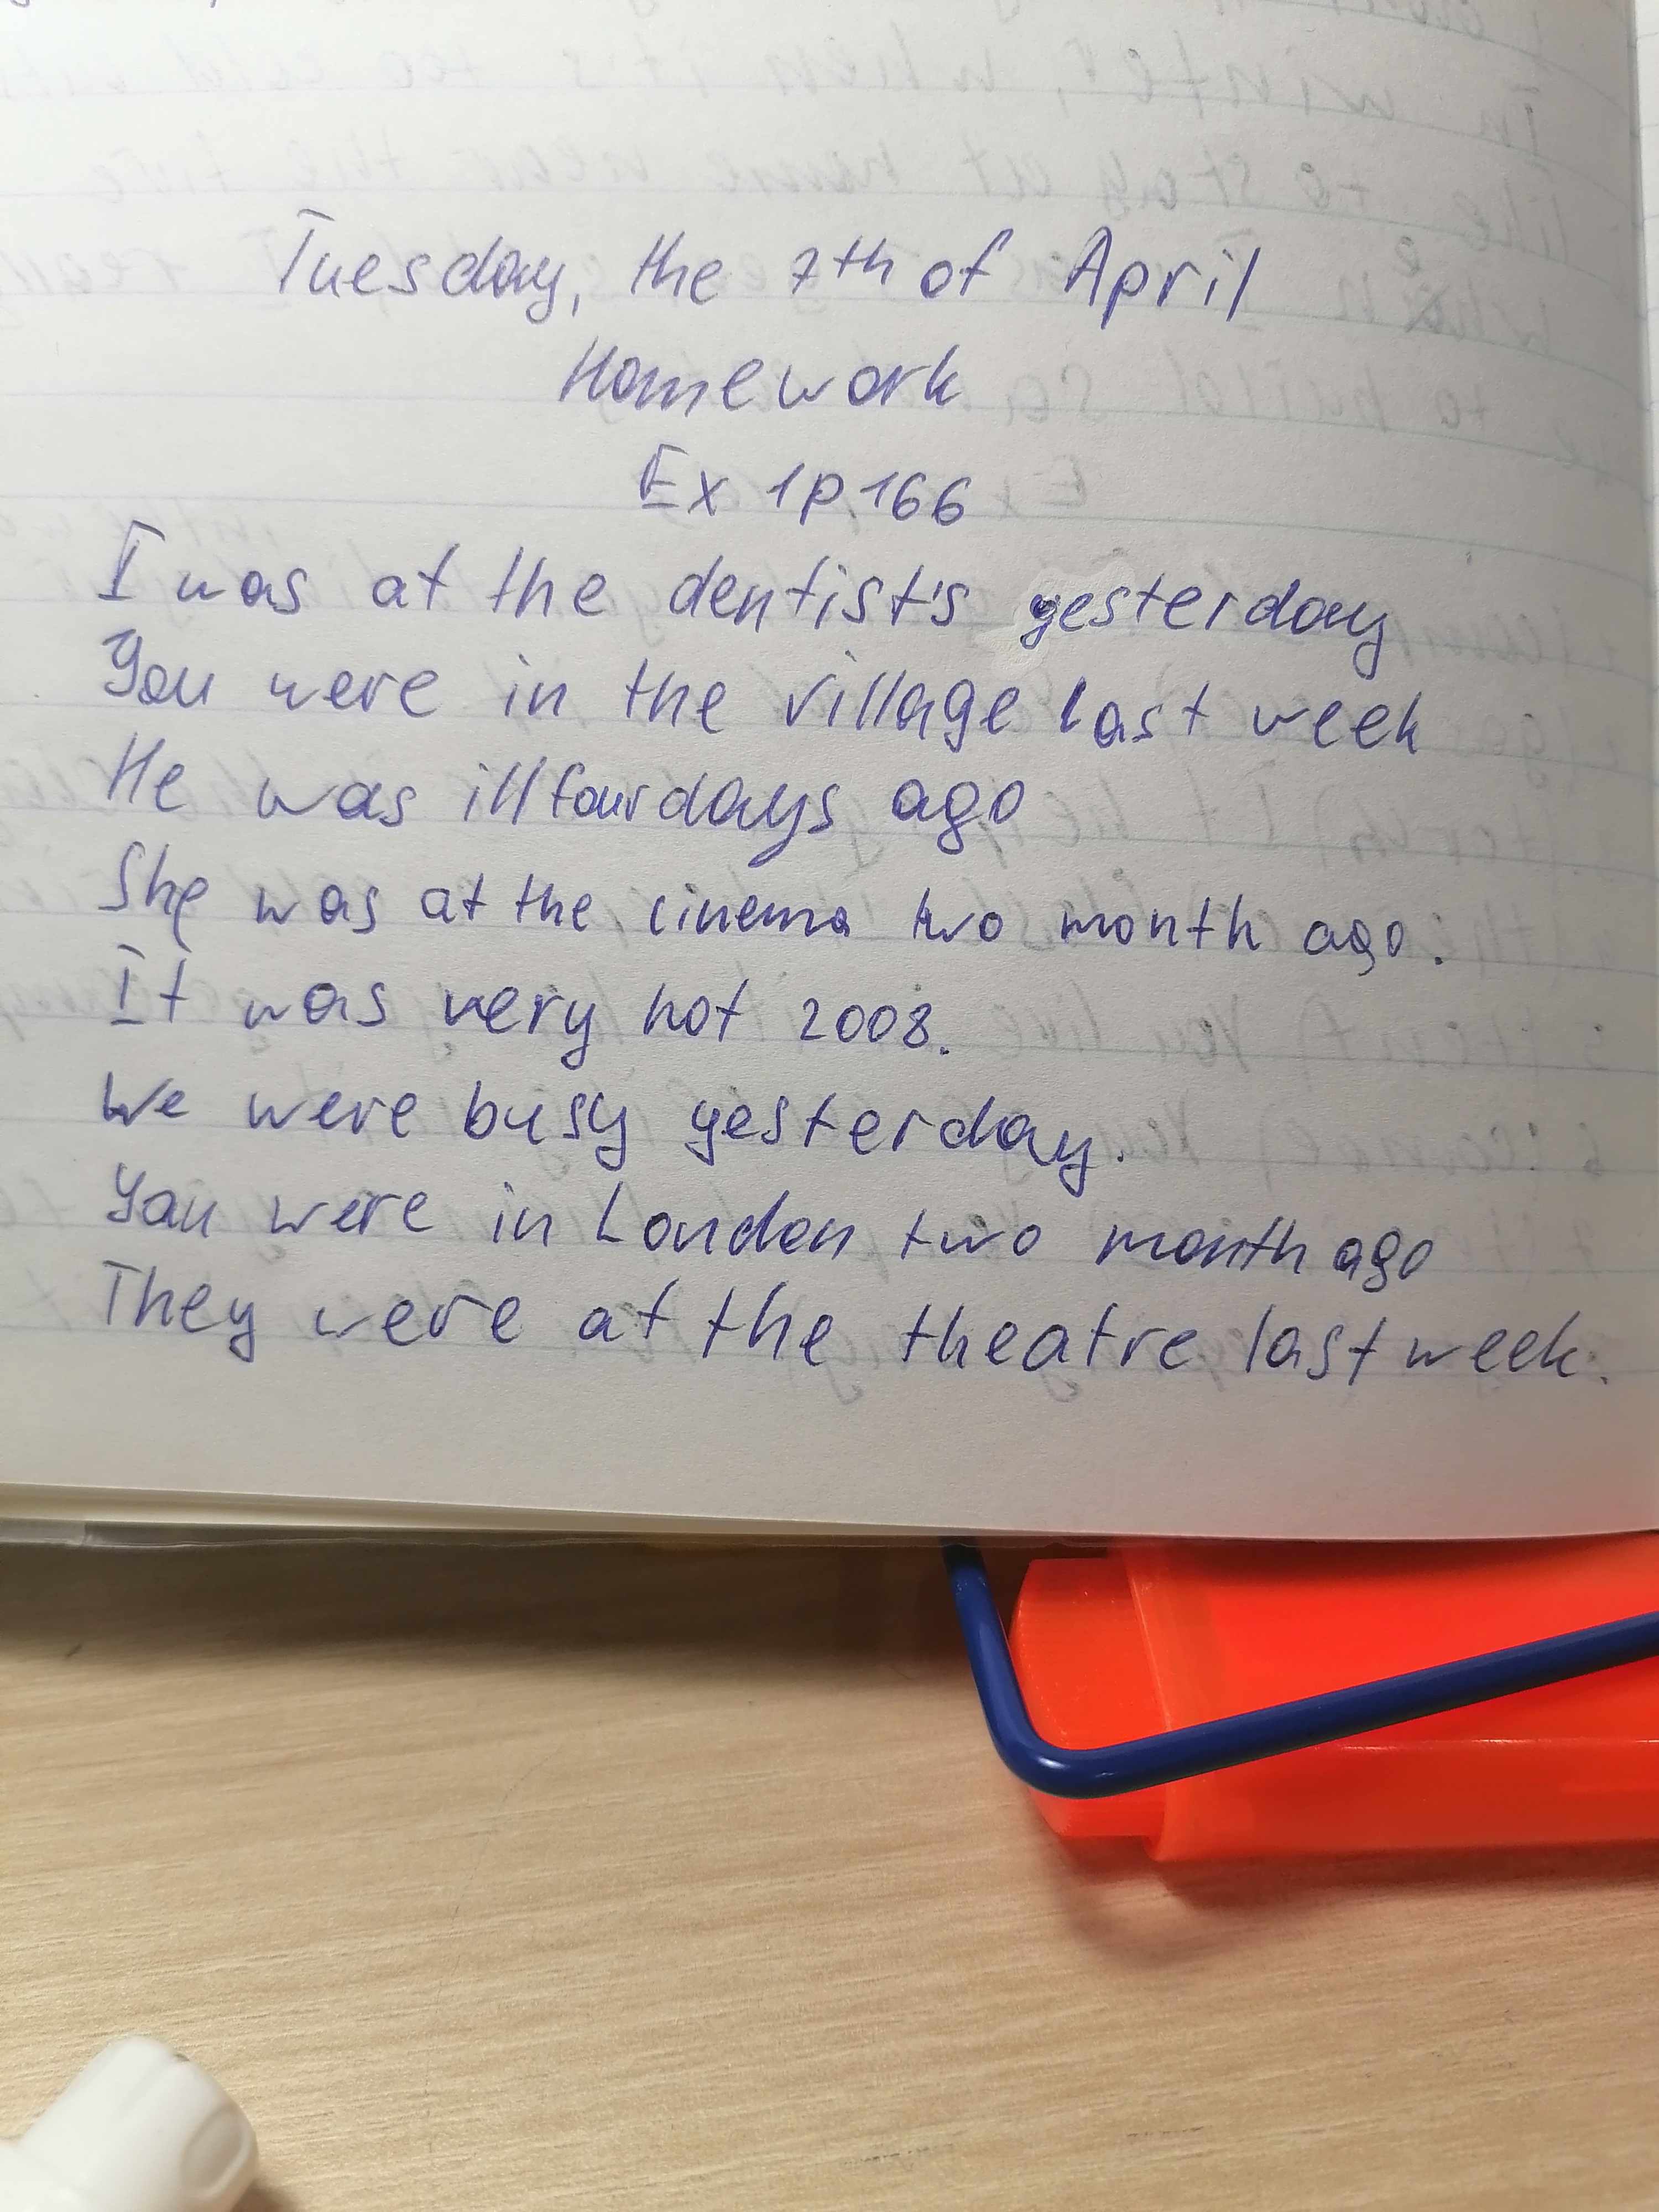 Tuesday, the 7th of April
Homework
Ex 1p.166
I was at the dentist's yesterday
You were in the village last week
He was ill four days ago
She was at the cinema two month ago.
It was very hot 2008.
We were busy yesterday.
You were in London two month ago
They were at the theatre last week.